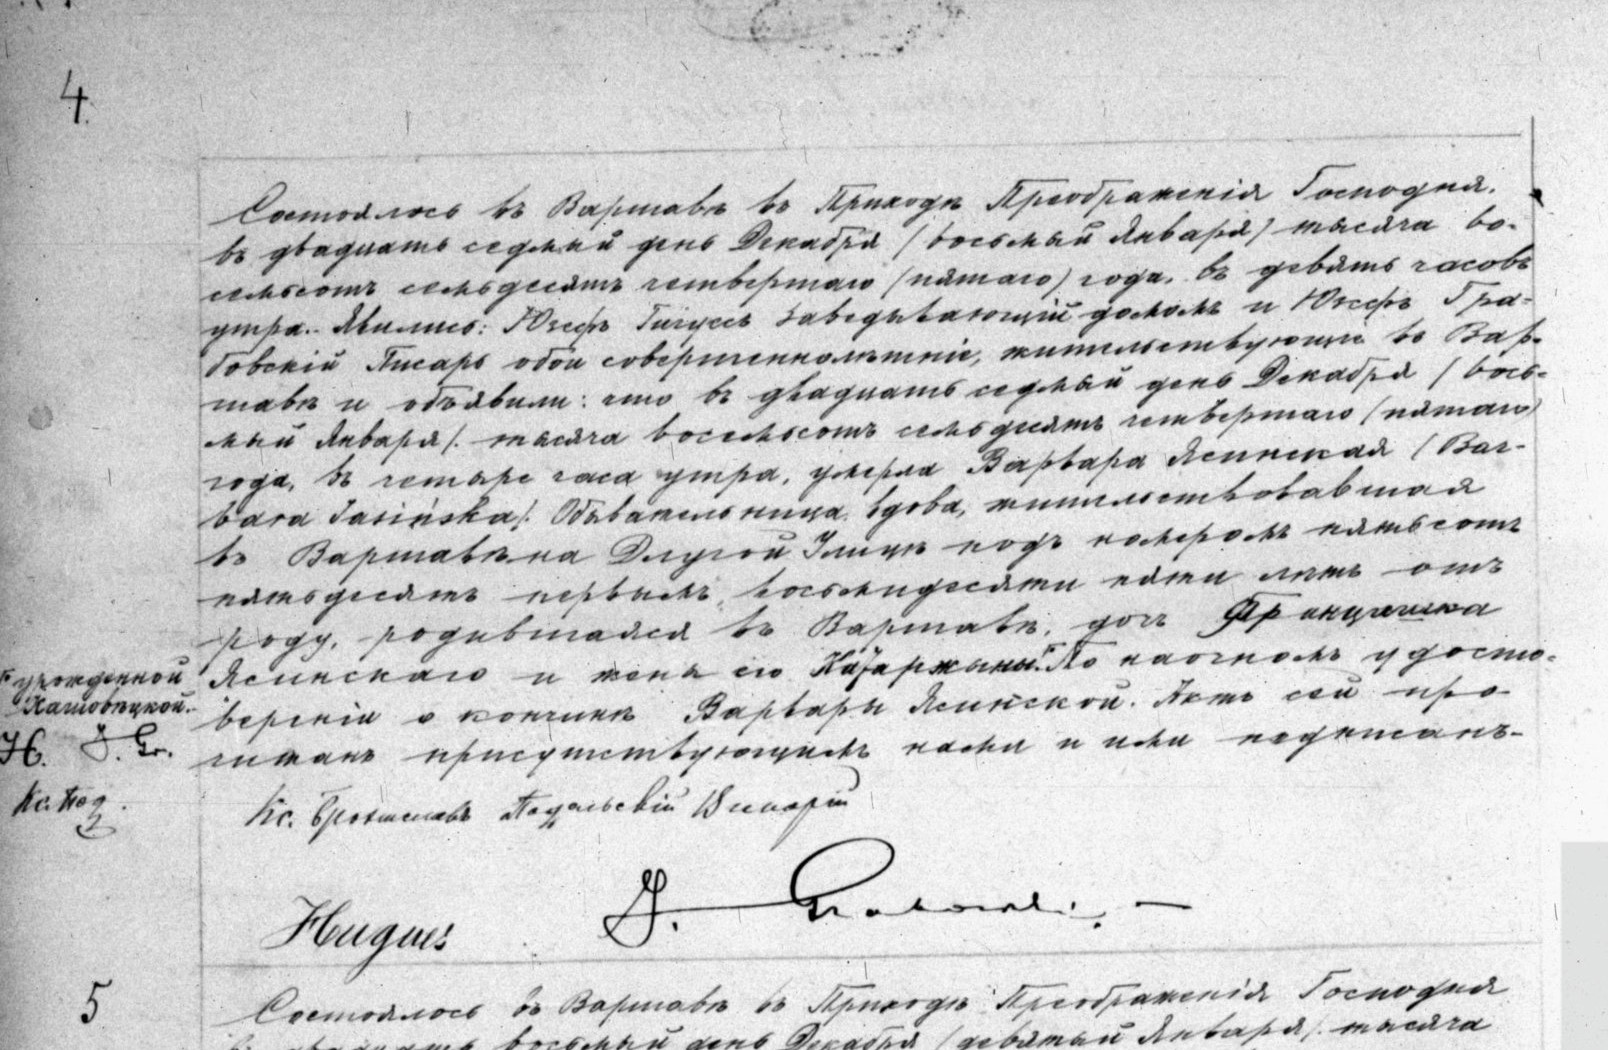 4.
Состоялось въ Варшавѣ въ Приходѣ Преображенія Господня.
въ двадцать седмый день Декабря /восьмый Января/ тысяча во-
семьсотъ семьдесятъ четвертаго /пятаго/ года, въ девять часовъ
утра.- Явились: Юзефъ Гигусъ Завѣдывающій домомъ и Юзефъ Гра-
бовскій Писарь обои совершеннолѣтніе, жительствующіе въ Вар-
шавѣ и объявили: что въ двадцать седмый день Декабря /вось-
мый Января/. тысяча восемьсотъ семьдесятъ четвертаго /пятаго/
года, въ четыре часа утра, умерла Варвара Ясинская /Bar-
bara Jasińska/. Обывательница вдова, жительствовавшая
въ Варшавѣ на Длугой Улицѣ подъ номеромъ пятьсотъ
пятьдесятъ первымъ, восьмидесяти пяти лѣтъ отъ
роду, родившаяся въ Варшавѣ, дочь Францишка
урожденной Ясинскаго и жены его Катаржыны. По наочномъ удосто-
верении о кончинѣ Варвары Ясинской. Актъ сей про-
H. J. Gr. читанъ присутствующимъ нами и ими подписанъ.-
Кс. Под.
Кс. Брониславъ Подольскій Викарій
Hugues J. Grabowski. -
5
Состоялось въ Варшавѣ въ Приходѣ Преображенія Господня
въ двадцать восьмый день Декабря /девятый Января/. тысяча